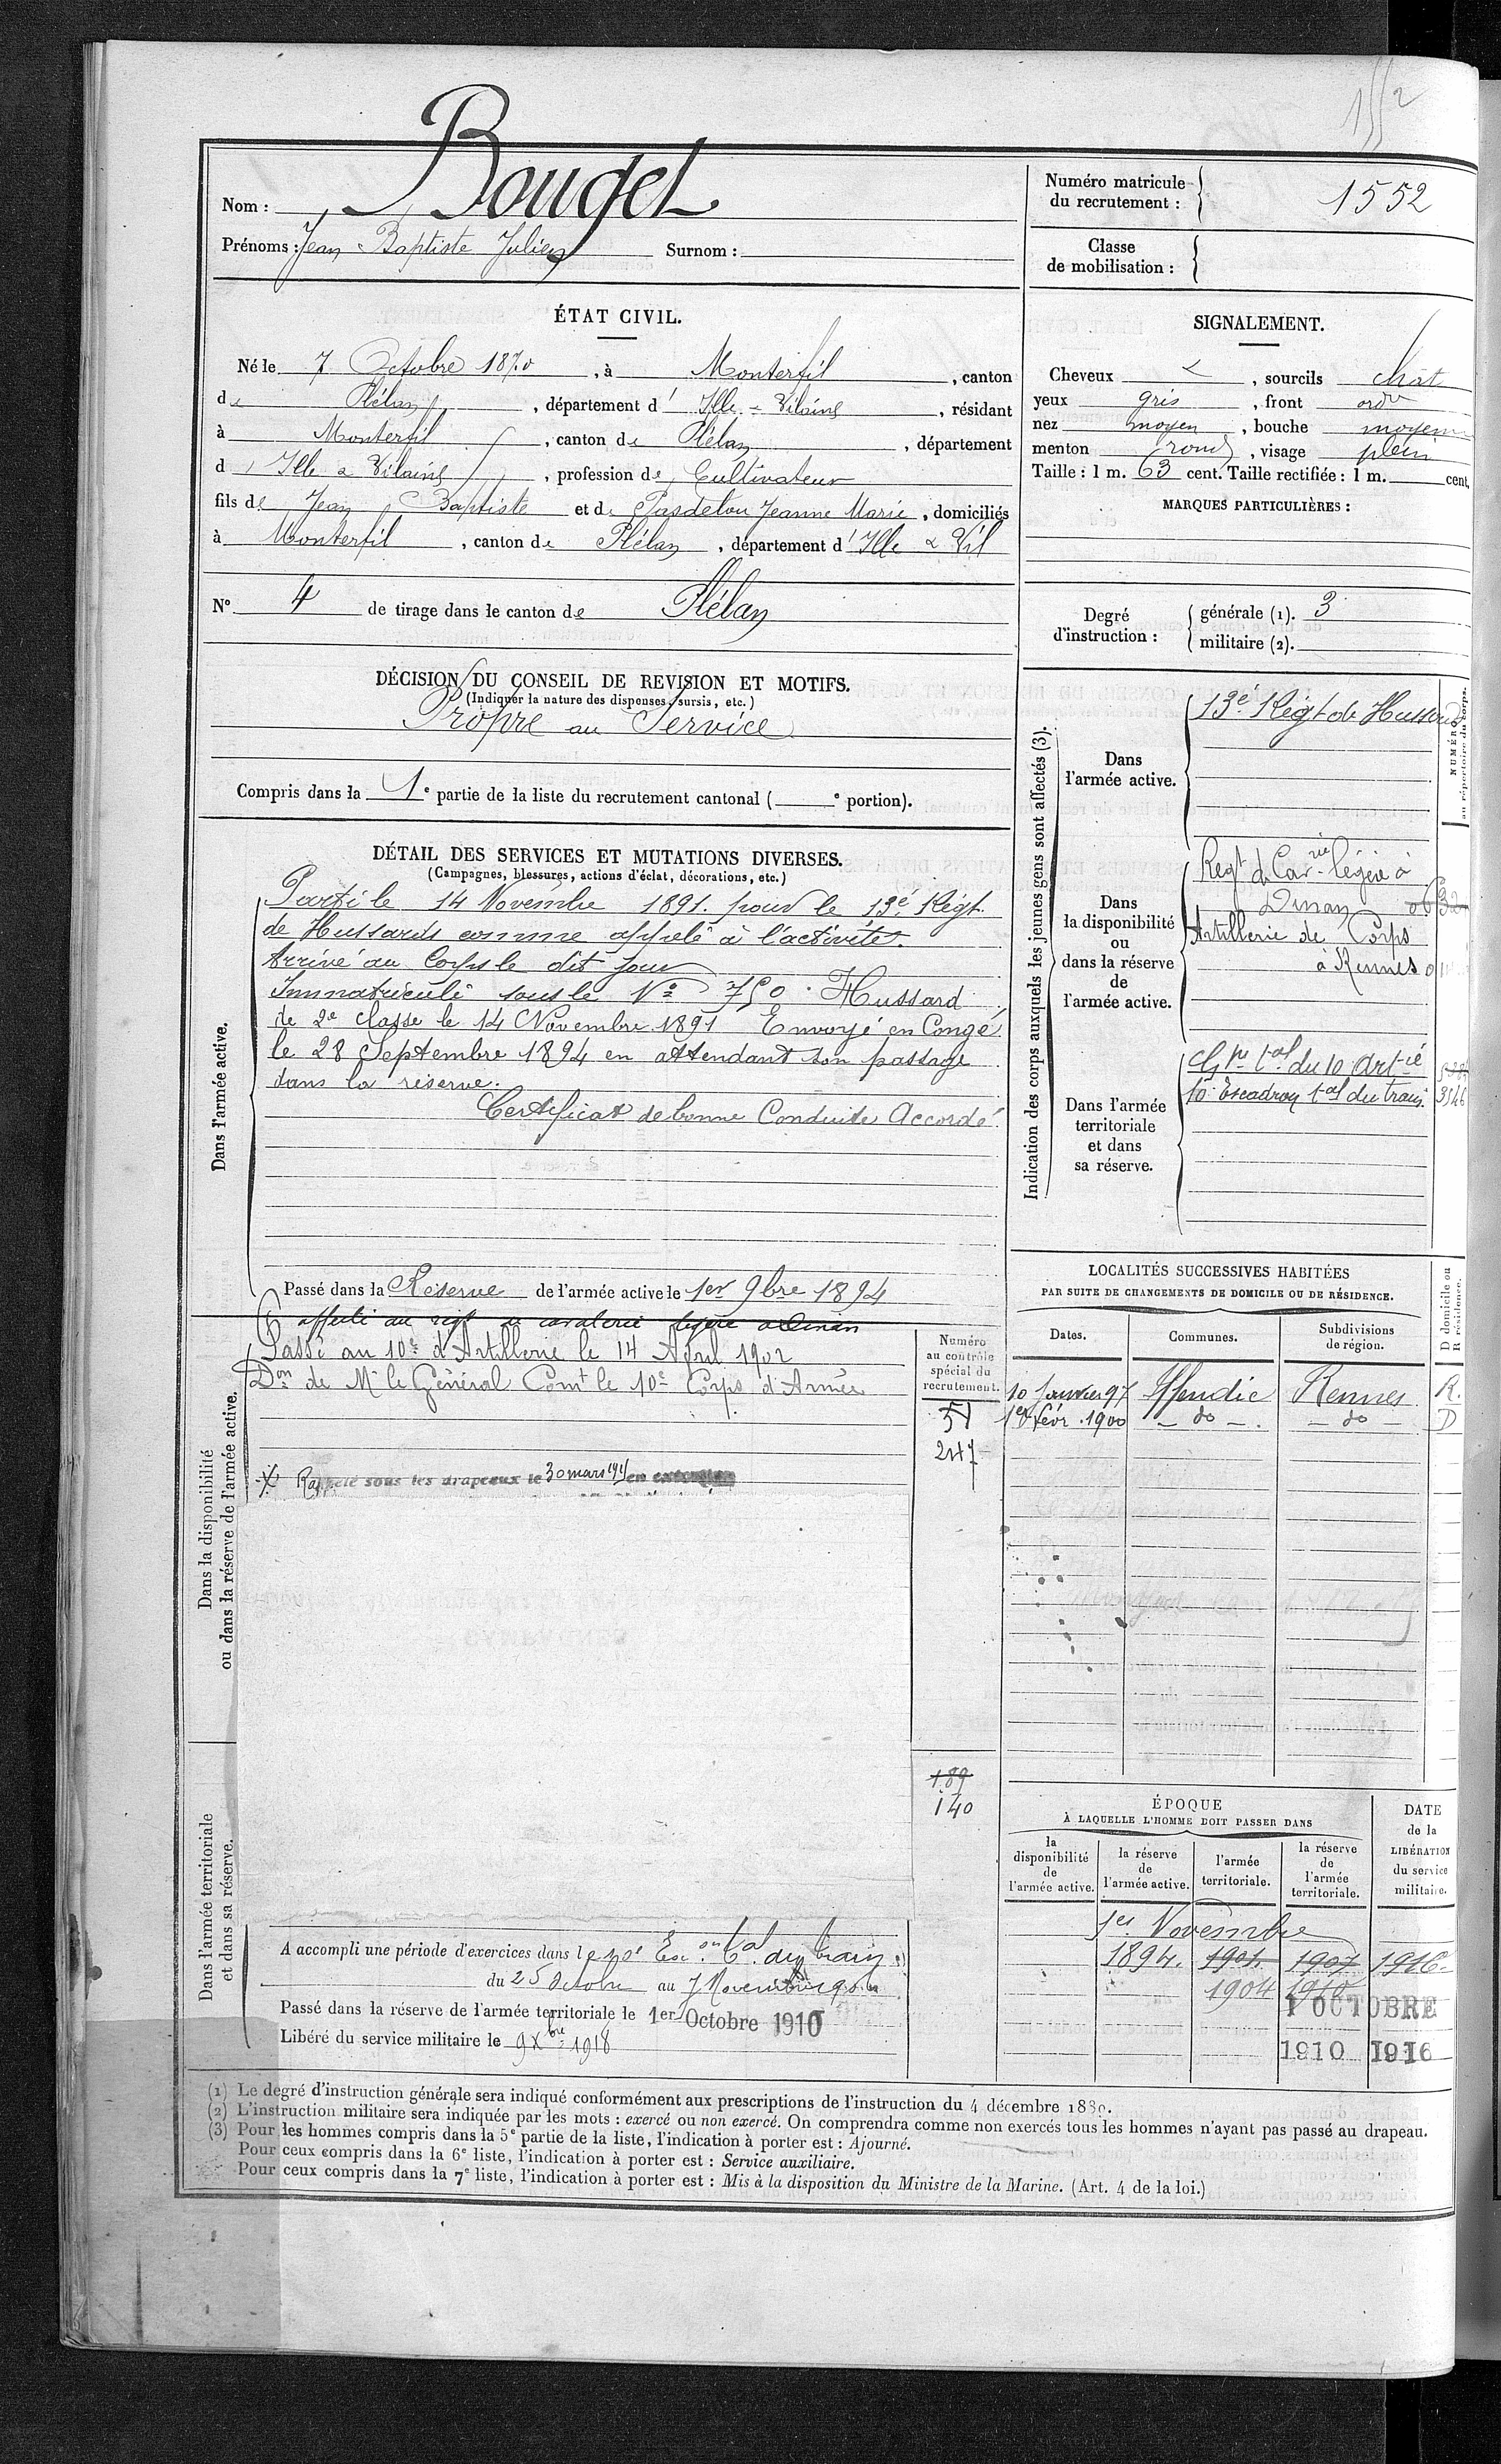 1552
Bouget
Nom :
Prénoms : Jean Baptiste Julien Surnom :
Numéro matricule du recrutement : 1552
Classe de mobilisation :
ÉTAT CIVIL.
Né le 7 Octobre 1870, à Monterfil, canton
de Plélan, département d'Ille-&-Vilaine, résidant
à Monterfil, canton de Plélan, département
d'Ille & Vilaine, profession de Cultivateur
fils de Jean Baptiste et de Pasdelou Jeanne Marie, domiciliés
à Monterfil, canton de Plélan, département d'Ille & Vil
N° 4 de tirage dans le canton de Plélan
SIGNALEMENT.
Cheveux , sourcils chât
yeux gris, front ordre
nez moyen, bouche moyenne
menton rond, visage plein
Taille : 1 m. 63 cent. Taille rectifiée : 1 m. cent.
MARQUES PARTICULIÈRES :
Degré d'instruction : générale (1). 3
militaire (2).
DÉCISION DU CONSEIL DE REVISION ET MOTIFS.
(Indiquer la nature des dispenses, sursis, etc.)
Propre au Service
Compris dans la 1e partie de la liste du recrutement cantonal ( e portion).
DÉTAIL DES SERVICES ET MUTATIONS DIVERSES.
(Campagnes, blessures, actions d'éclat, décorations, etc.)
Dans l'armée active.
Parti le 14 Novembre 1891. pour le 13e Régt
de Hussards comme appelé à l'activité.
Arrivé au Corps le dit jour
Immatriculé sous le No 750. Hussard
de 2e classe le 14 Novembre 1891 Envoyé en Congé
le 28 Septembre 1894 en attendant son passage
dans la réserve.
Certificat de bonne Conduite Accordé.
Passé dans la Réserve de l'armée active le 1er 9bre 1894
Indication des corps auxquels les jeunes gens sont affectés (3).
NUMÉRO au répertoire du corps.
Dans l'armée active.
13e Régt de Hussards
Dans la disponibilité ou dans la réserve de l'armée active.
Regt de Cavrie légère à
Dinan
Artillerie de Corps
à Rennes
Dans l'armée territoriale et dans sa réserve.
du 10 Artie
10 Escadron tal du train. 3546
Dans la disponibilité ou dans la réserve de l'armée active.
affecté au régt de cavalerie légère à Dinan
Passé au 10e d'Artillerie le 14 April 1902
Don de Mr le Général Comt le 10e Corps d'Armée
Rappelé sous les drapeaux le 30 mars 191
Numéro au contrôle spécial du recrutement.
51
247
189
140
LOCALITÉS SUCCESSIVES HABITÉES
PAR SUITE DE CHANGEMENTS DE DOMICILE OU DE RÉSIDENCE.
Dates. Communes. Subdivisions de région. D domicile ou R résidence.
10 Janvier 97 Iffendic Rennes R.
1er févr. 1900 - do - - do - D
ÉPOQUE
À LAQUELLE L'HOMME DOIT PASSER DANS
la disponibilité de l'armée active.
la réserve de l'armée active.
l'armée territoriale.
la réserve de l'armée territoriale.
DATE de la LIBÉRATION du service militaire.
1er Novembre
1894. 1901. 1907 1916.
1904 1910
1 OCTOBRE
1910 1916
Dans l'armée territoriale et dans sa réserve.
A accompli une période d'exercices dans le 10e Escon tal du train
du 25 Octobre au 7 Novembre 190
Passé dans la réserve de l'armée territoriale le 1er Octobre 1910
Libéré du service militaire le 9 Xbre 1918
(1) Le degré d'instruction générale sera indiqué conformément aux prescriptions de l'instruction du 4 décembre 1889.
(2) L'instruction militaire sera indiquée par les mots : exercé ou non exercé. On comprendra comme non exercés tous les hommes n'ayant pas passé au drapeau.
(3) Pour les hommes compris dans la 5e partie de la liste, l'indication à porter est : Ajourné.
Pour ceux compris dans la 6e liste, l'indication à porter est : Service auxiliaire.
Pour ceux compris dans la 7e liste, l'indication à porter est : Mis à la disposition du Ministre de la Marine. (Art. 4 de la loi.)